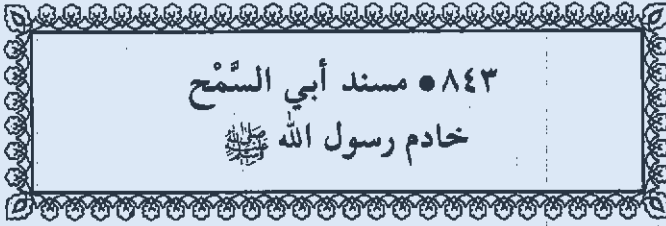 ٨٤٣ ● مسند أبي السَّمْح
خادم رسول الله ﷺ